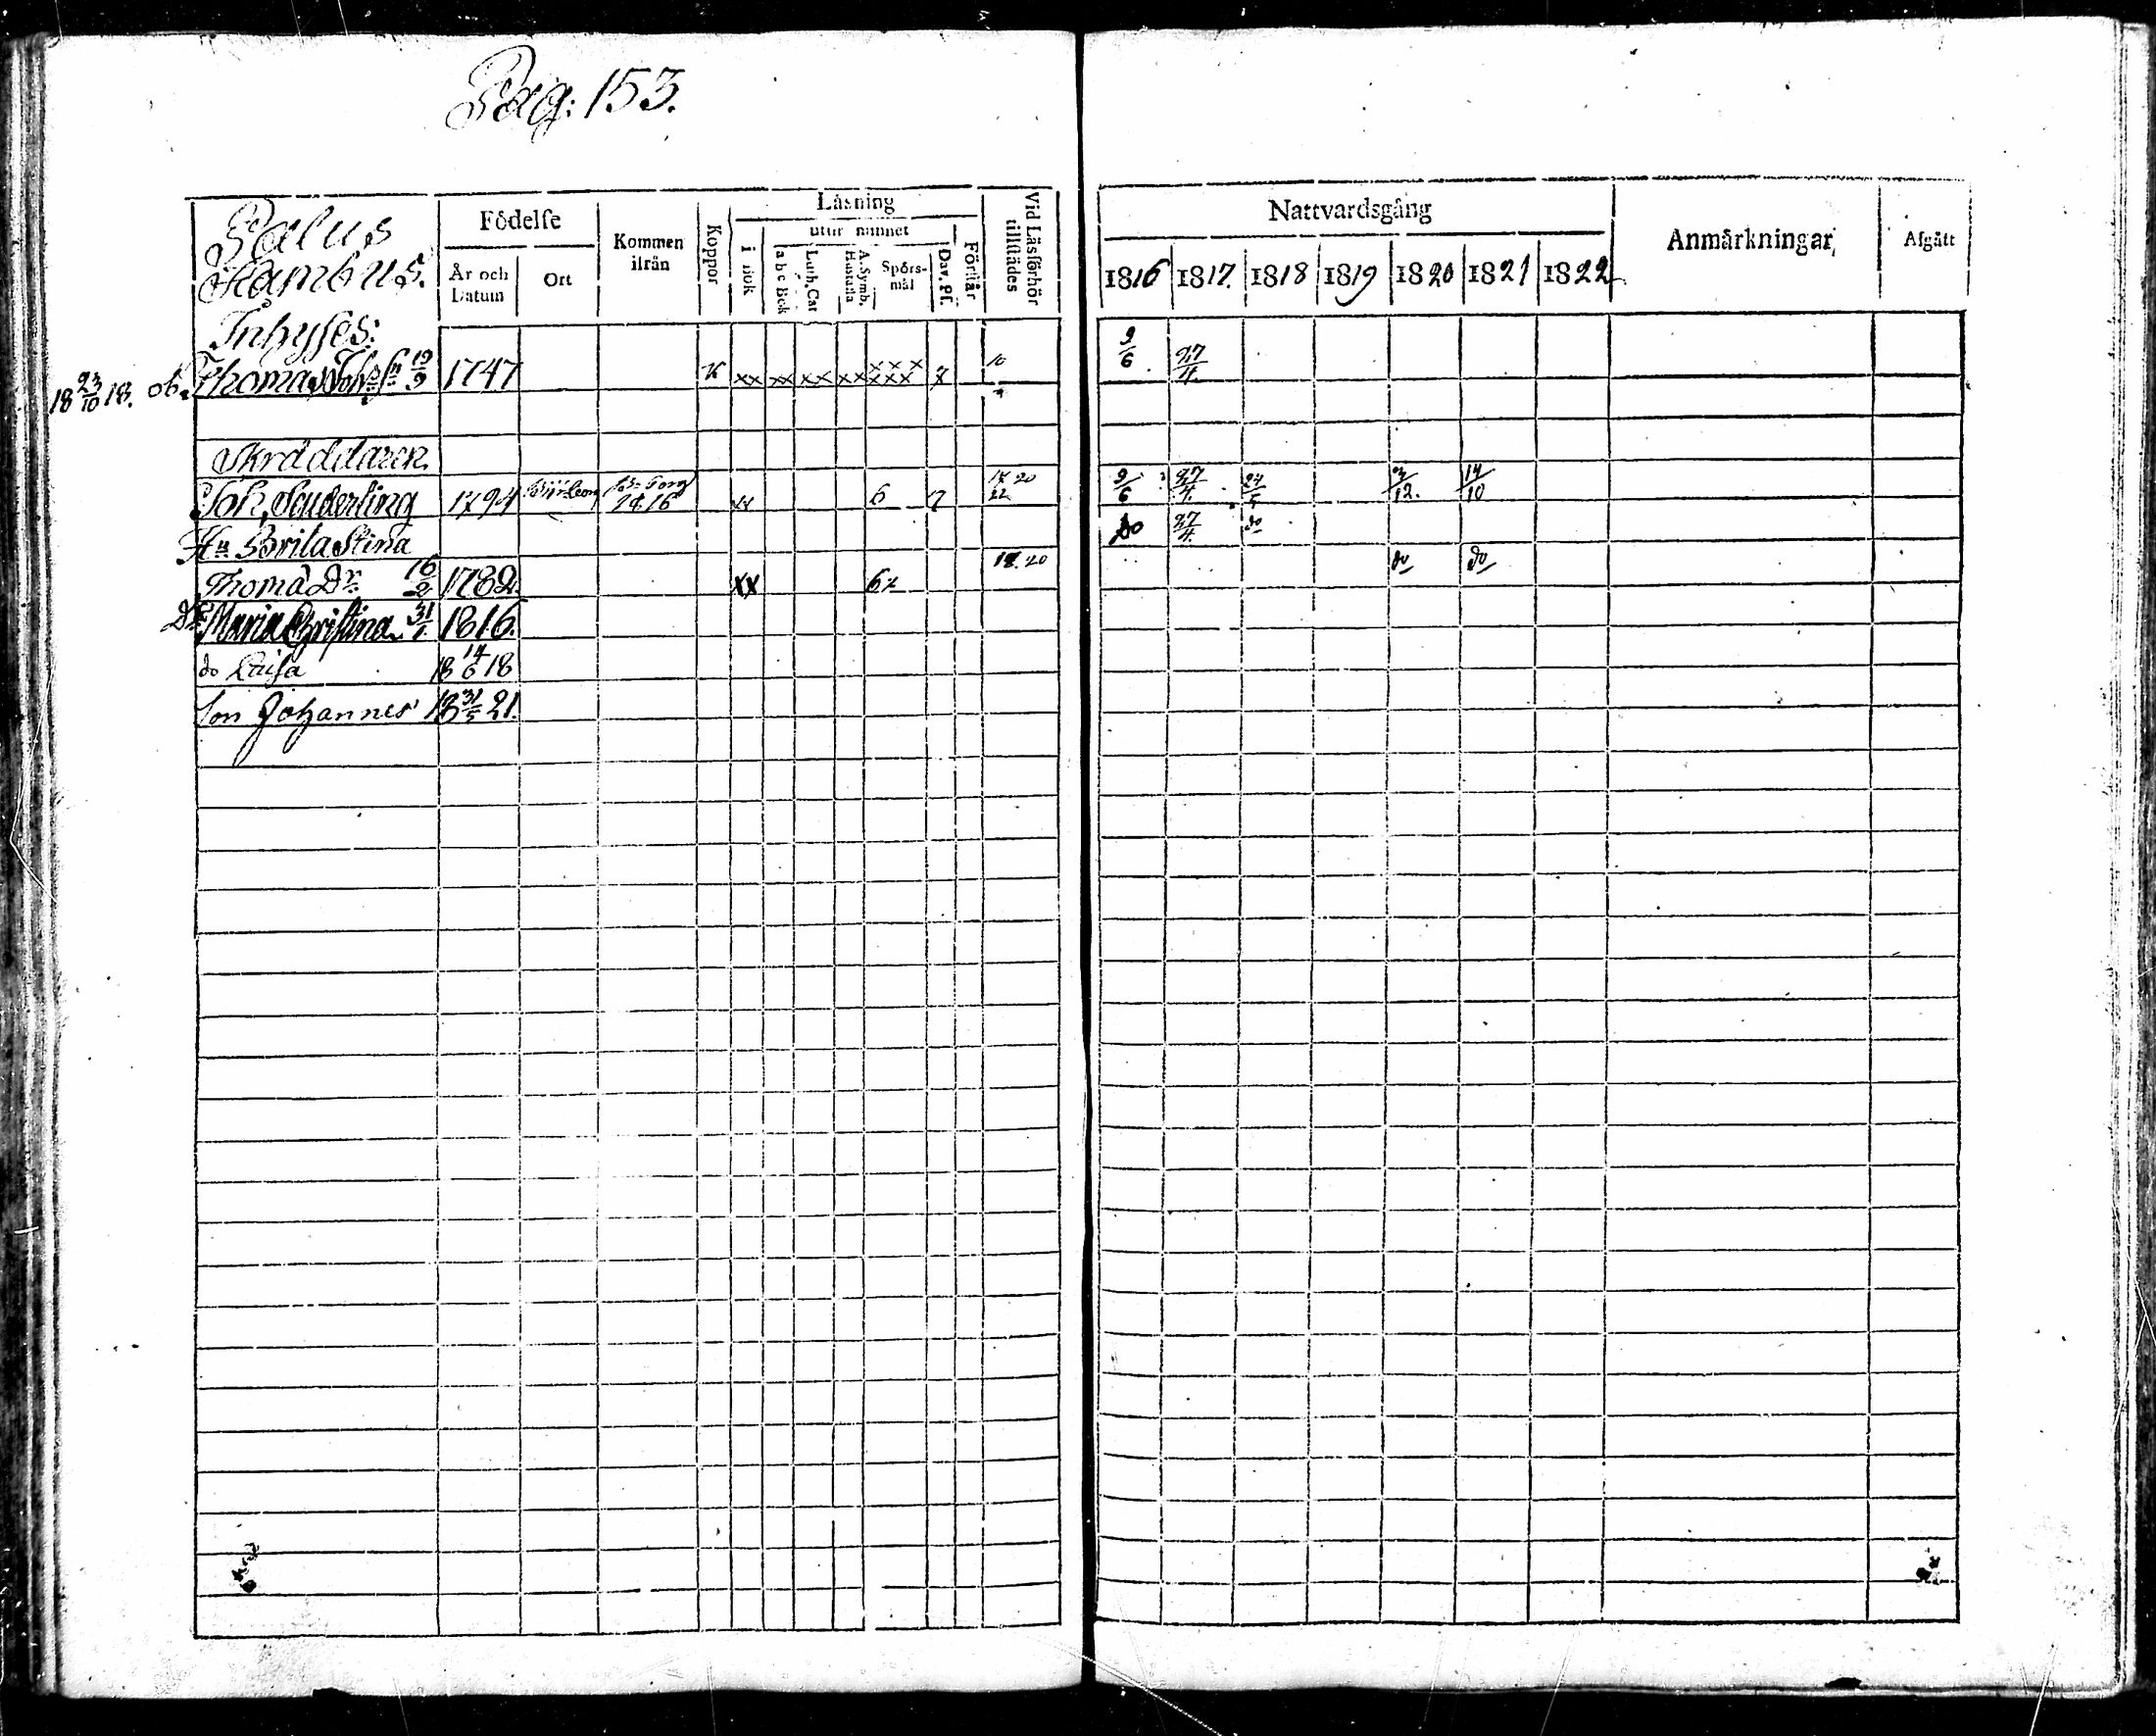 Pag: 153.
Palus
Hambus.
Födelse
År och Datum
Ort
Kommen ifrån
Koppor
Läsning
i bok
utur minnet
a b c Bok
Luth. Cat
A. Symb. Hustafla
Spörs-mål
Dav. Ps.
Förstår
Vid Läsförhör tillstädes
Nattvardsgång
1816 1817. 1818 1819 1820 1821 1822
Anmärkningar
Afgått
Inhyses:
18 23/10 18. ob. Thomas Joh:s S:n 19/9 1747 K xx xx xx xx xxx xxx x 10 9/6 27/4
Skräddaren
Joh. Souderling 1794 1816 6 7 20 22 9/6 27/4 24/5 3/12. 14/10
H:u Brita Stina do 27/4 do
Thomä D:r 16/2 1782. xx 6 18. 20 do do
D:r Maria Christina 31/1. 1816.
do Luisa 18 14/6 18
Son Johannes 18 31/5 21.